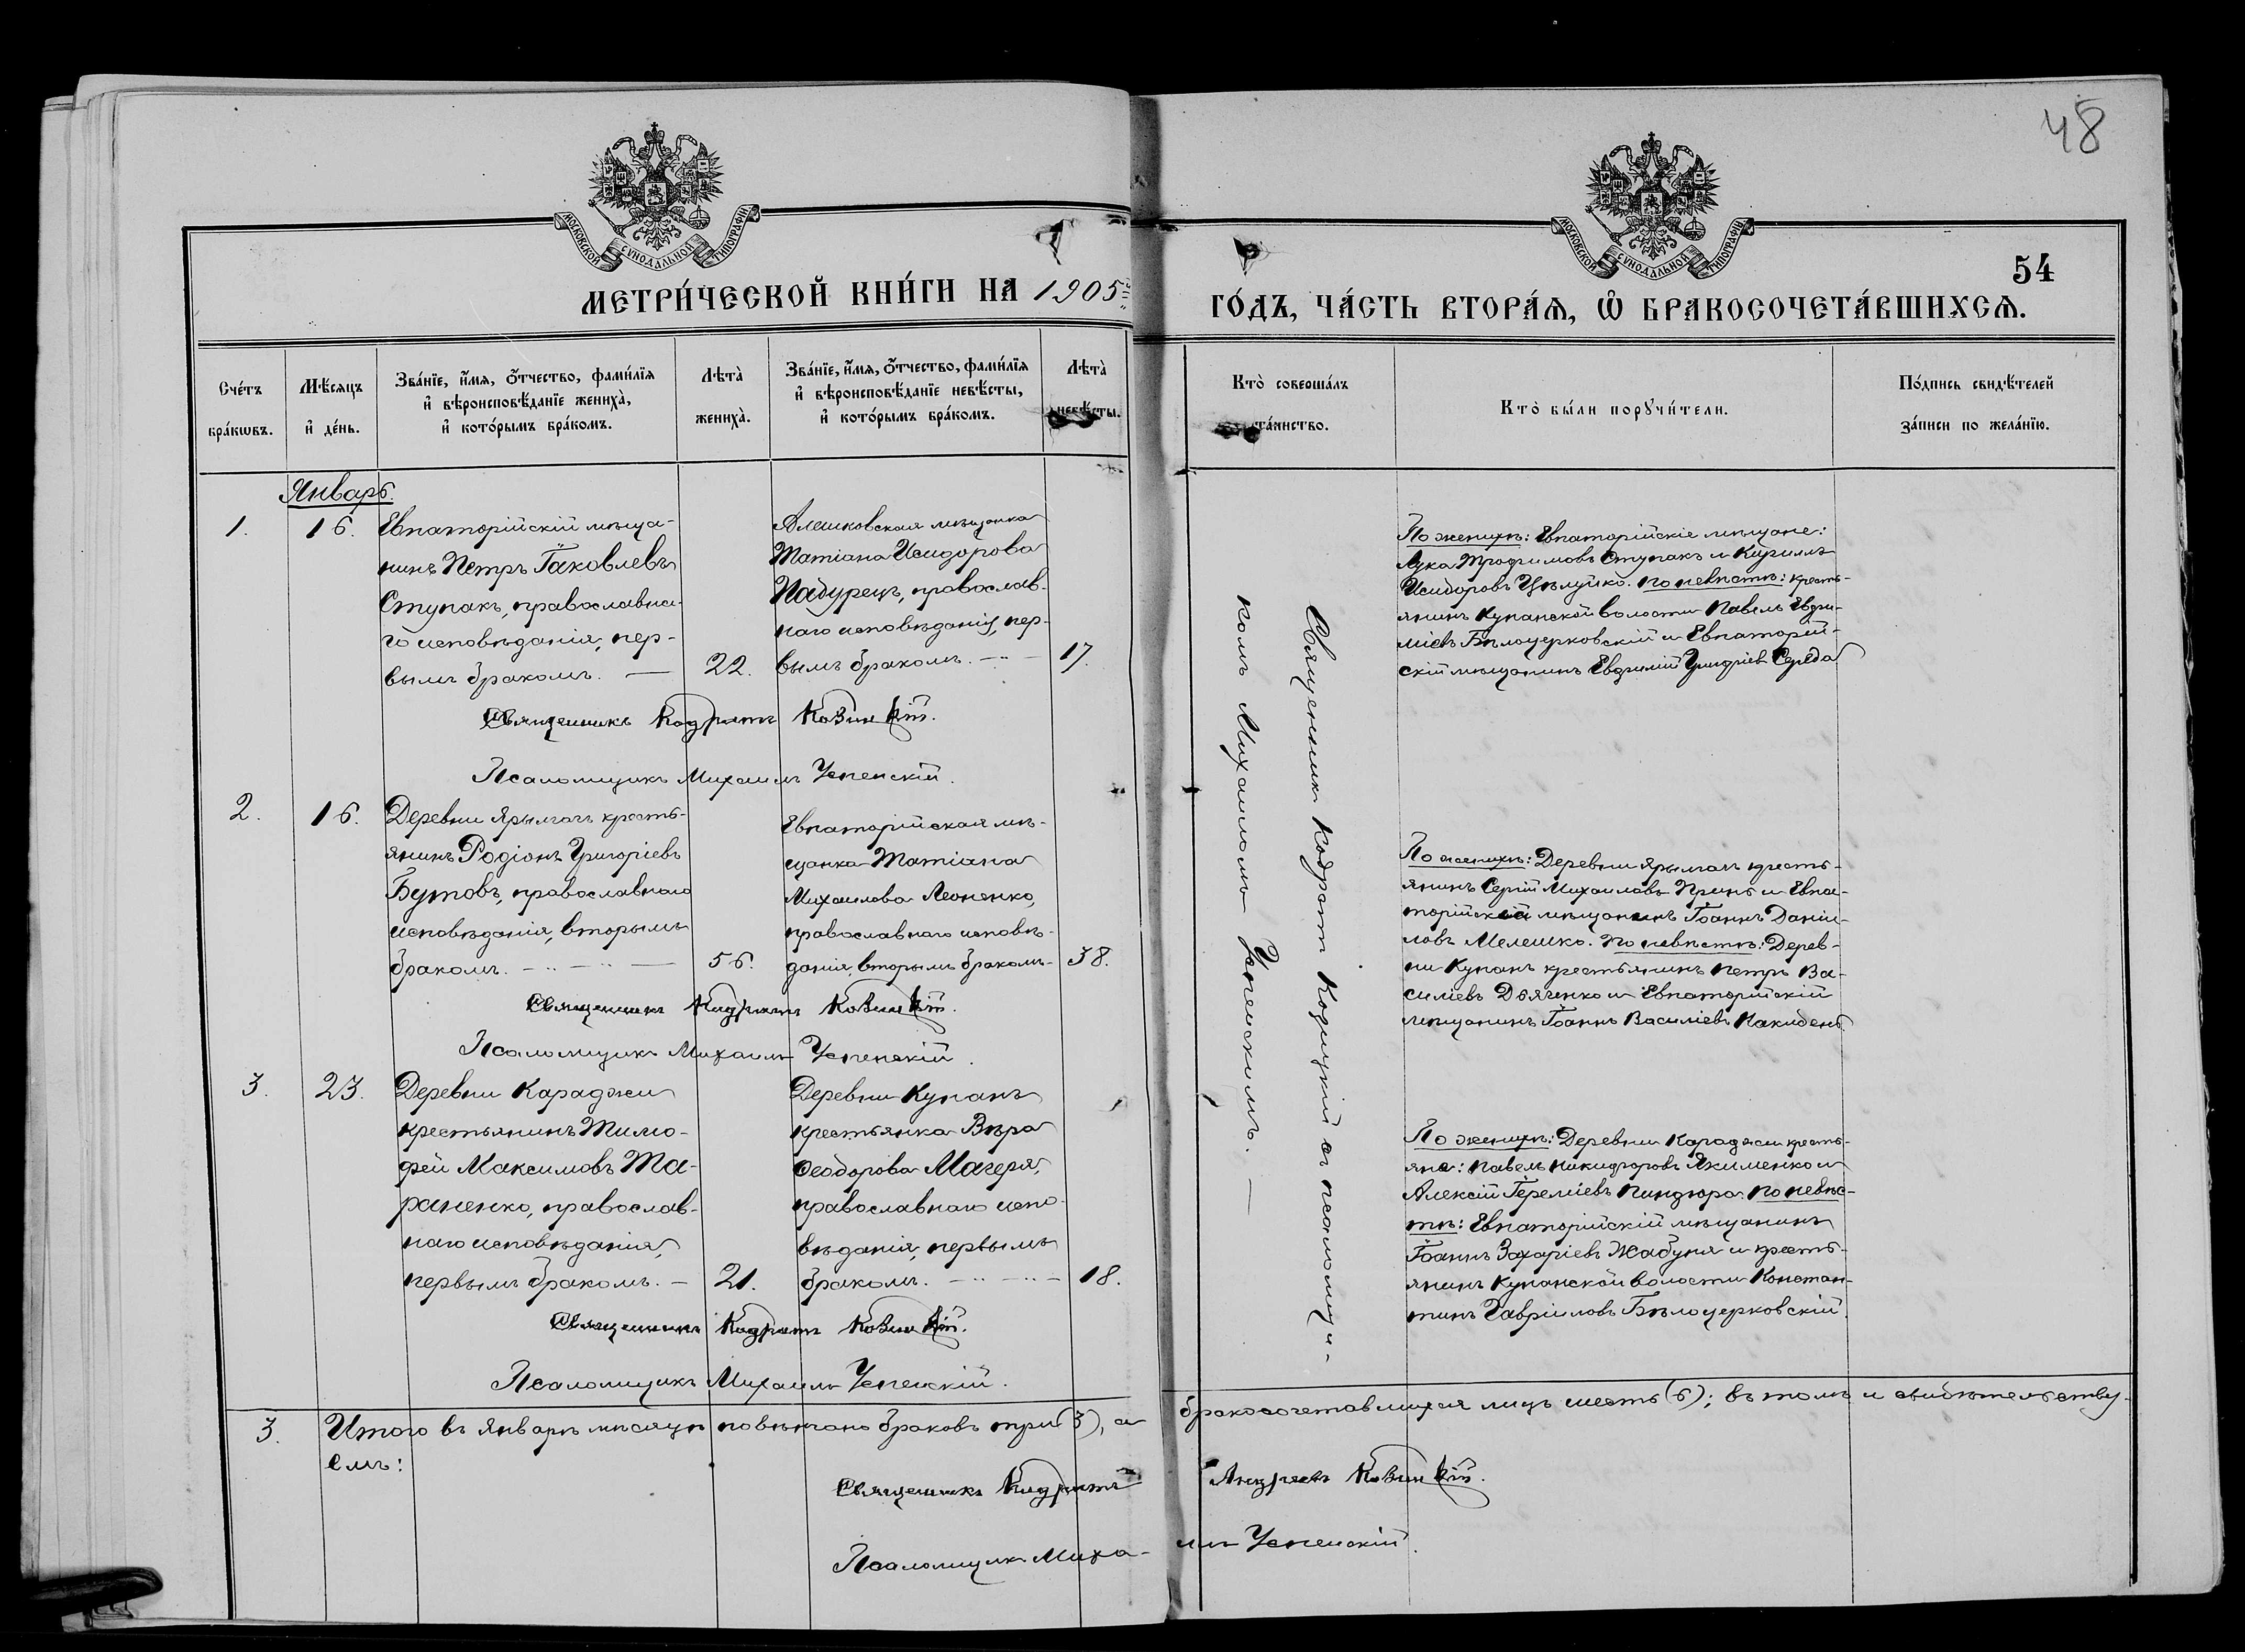 48
МОСКОВСКОЙ СѴНОДАЛЬНОЙ ТИПОГРАФІИ
МОСКОВСКОЙ СѴНОДАЛЬНОЙ ТИПОГРАФІИ
54
МЕТРИ́ЧЕСКОЙ КНИ́ГИ НА 1905й
ГО́ДЪ, ЧА́СТЬ ВТОРА́Ѧ, Ѽ БРАКОСОЧЕТА́ВШИХСѦ.
Сче́тъ
бра́кѡвъ.
Мѣ́сяцъ
и҆ де́нь.
Зва́нїе, и҆́мя, ѻ҆́тчество, фами́лїя
и҆ вѣроисповѣ́данїе жениха̀,
и҆ кото́рымъ бра́комъ.
Лѣта̀
жениха̀.
Зва́нїе, и҆́мя, ѻ҆́тчество, фами́лїя
и҆ вѣроисповѣ́данїе невѣ́сты,
и҆ кото́рымъ бра́комъ.
Лѣта̀
невѣ́сты.
Кто̀ соверша́лъ
та́инство.
Кто̀ бы́ли порꙋчи́тели.
По́дпись свидѣ́телей
за́писи по жела́нїю.
Январь.
1.
16.
Евпаторійскій мѣща-
нинъ Петръ Іаковлевъ
Ступакъ, православна-
го исповѣданія, пер-
вымъ бракомъ. —
22.
Алешковская мѣщанка
Татіана Исидорова
Падурецъ, православ-
наго исповѣданія, пер-
вымъ бракомъ. —
17.
Священникъ Кодратъ
Псаломщикъ Михаилъ Успенскій.
По женихѣ: Евпаторійскіе мѣщане:
Лука Трофимовъ Ступакъ и Кириллъ
Исидоровъ Цѣлуйко. по невѣстѣ: кресть-
янинъ Кунанской волости Павелъ Евфи-
міевъ Бѣлоцерковскій и Евпаторій-
скій мѣщанинъ Евфимій Григоріевъ Середа
2.
16.
Деревни Ярылгачъ кресть-
янинъ Родіонъ Григоріевъ
Бутовъ, православнаго
исповѣданія, вторымъ
бракомъ. —
56.
Евпаторійская мѣ-
щанка Татіана
Михаилова Леоненко,
православнаго исповѣ-
данія, вторымъ бракомъ-
38.
Священникъ Кодратъ
Псаломщикъ Михаилъ Успенскій.
По женихѣ: Деревни Ярылгачъ кресть-
янинъ Сергій Михаиловъ и Евпа-
торійскій мѣщанинъ Іоаннъ Даніи-
ловъ Мелешко. По невѣстѣ: Дерев-
ни Кунанъ крестьянинъ Петръ Ва-
силіевъ Дьяченко и Евпаторійскій
мѣщанинъ Іоаннъ Василіевъ Накидень.
3.
23.
Деревни Караджи
крестьянинъ Тимо-
фей Максимовъ Та-
раненко, православ-
наго исповѣданія,
первымъ бракомъ. —
21.
Деревни Кунанъ
крестьянка Вѣра
Ѳеодорова Магеря,
православнаго испо-
вѣданія, первымъ
бракомъ. —
18.
Священникъ Кодратъ
Псаломщикъ Михаилъ Успенскій.
По женихѣ: Деревни Караджи кресть-
яне: Павелъ Никифоровъ Якименко и
Алексій Іереміевъ Пиндюра. По невѣс-
тѣ: Евпаторійскій мѣщанинъ
Іоаннъ Захаріевъ Жабуня и кресть-
янинъ Кунанской волости Констан-
тинъ Гавріиловъ Бѣлоцерковскій.
Священник Кодрат съ псаломщи-
комъ Михаиломъ Успенскимъ. —
3.
Итого въ январѣ мѣсяцѣ повѣнчано браковъ три (3), а бракосочетавшихся лицъ шесть (6); въ томъ и свидѣтельству-
емъ:
Священникъ Кодратъ Андреевъ
Псаломщикъ Миха-илъ Успенскій.